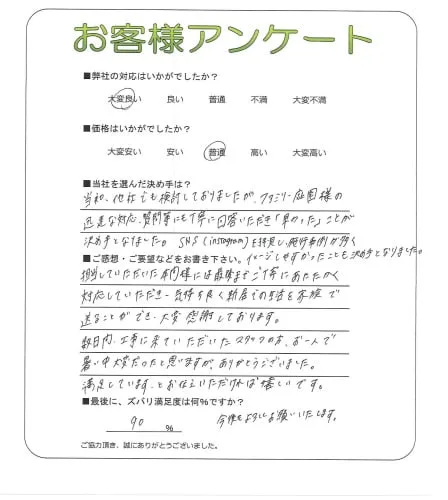 お客様アンケート
■弊社の対応はいかがでしたか?
大変良い 良い 普通 不満 大変不満
■価格はいかがでしたか?
大変安い 安い 普通 高い 大変高い
■当社を選んだ決め手は?
当初、他社でも検討しておりましたが、ファミリー庭園様の
迅速な対応、質問等にも丁寧に回答いただき「早かった」ことが
決め手となりました。SNS(instagram)を拝見し、施行事例が多く
イメージしやすかったことも決め手となりました。
■ご感想・ご要望などをお書き下さい。
担当していただいた 様には最後までご丁寧にあたたかく
対応していただき、気持ち良く新居での生活を家族で
送ることができ、大変感謝しております。
数日内、工事に来ていただいたスタッフの方、お一人で
暑い中大変だったと思いますが、ありがとうございました。
満足しています、とお伝えいただければ嬉しいです。
■最後に、ズバリ満足度は何%ですか?
90 %
今後ともよろしくお願いいたします。
ご協力頂き、誠にありがとうございました。